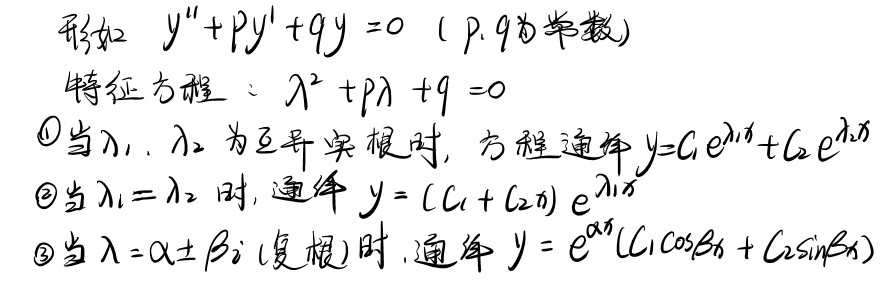 形如 y''+py'+qy=0 (p.q为常数)
特征方程: λ²+pλ+q=0
①当λ₁.λ₂为互异实根时,方程通解y=C₁e^{λ₁x}+C₂e^{λ₂x}
②当λ₁=λ₂时,通解y=(C₁+C₂x)e^{λ₁x}
③当λ=α±βi(复根)时.通解y=e^{αx}(C₁cosβx+C₂sinβx)